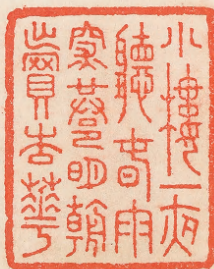 小樓一夜
聽春雨
深巷明朝
賣杏華